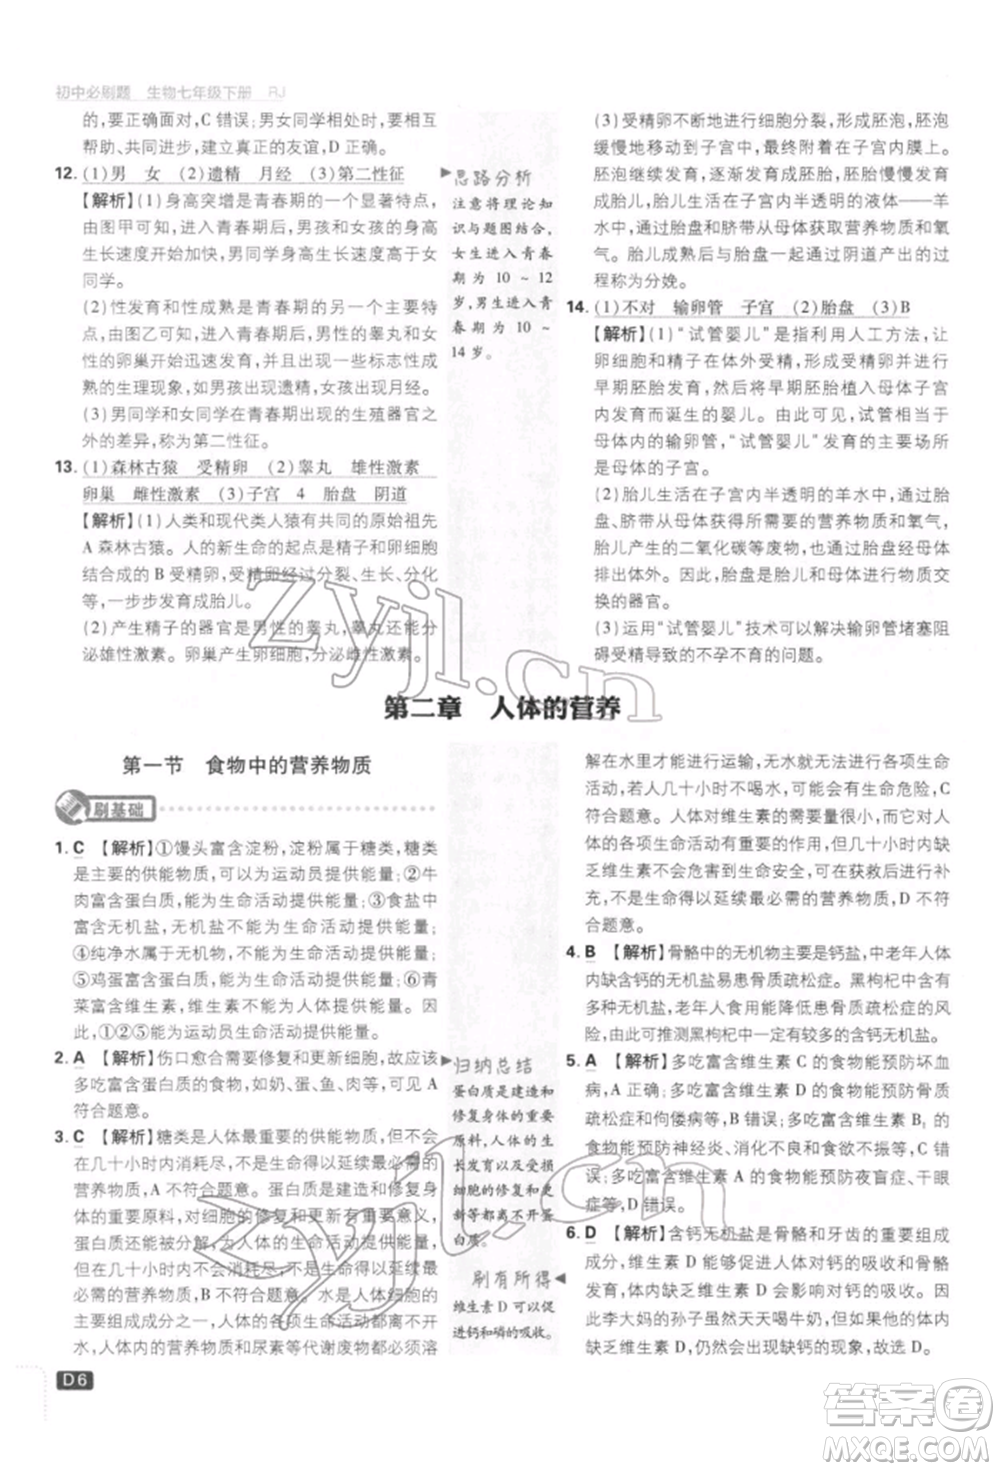 初中必刷题 生物七年级下册 RJ
的,要正确面对,C 错误;男女同学相处时,要互相
帮助、共同进步,建立真正的友谊,D 正确。
12. (1)男 女 (2)遗精 月经 (3)第二性征
【解析】(1)身高突增是青春期的一个显著特点,
由图甲可知,进入青春期后,男孩和女孩的身高
生长速度明显加快,男同学身高生长速度高于女
同学。
(2)性发育和性成熟是青春期发育的重要特
点,由图乙可知,进入青春期后,男性的睾丸和女性
的卵巢开始迅速发育,并出现一些标志性成
熟的生理现象,如男孩出现遗精,女孩出现月经。
(3)男同学和女同学在青春期出现的生殖器官之
外的差异,称为第二性征。
13. (1)森林古猿 受精卵 (2)睾丸 雄性激素
卵巢 雌性激素 (3)子宫 4 胎盘 阴道
【解析】(1)人类和现代类人猿有共同的原始祖先
A 森林古猿。人的新生命的起点是精子和卵细胞
结合成的 B 受精卵,受精卵经过分裂、生长、分化
等,一步步发育成胎儿。
(2)产生精子的器官是男性的睾丸,睾丸还能分
泌雄性激素。卵巢产生卵细胞,分泌雌性激素。
思路分析
注意将理论知
识与题图结合,
女生进入青春
期为 10 ~ 12
岁,男生进入青
春期为 10 ~
14 岁。
(3)受精卵不断地进行细胞分裂,形成胚泡,胚泡
缓慢地移动到子宫中,最终植入子宫内膜上。
胚泡继续发育,逐渐发育成胚胎,胚胎慢慢发育
成胎儿,胎儿生活在子宫内半透明的液体——羊
水中,通过胎盘和脐带从母体获取营养物质和氧
气。成熟的胎儿和胎盘一起通过阴道产出的过
程称为分娩。
14. (1)不对 输卵管 子宫 (2)胎盘 (3)B
【解析】(1)“试管婴儿”是指利用人工方法,让
卵细胞和精子在体外受精,形成受精卵并进行
早期胚胎发育,然后将早期胚胎植入母体子宫
内发育而诞生的婴儿。由此可见,试管相当于
母体的输卵管,“试管婴儿”发育的主要场所
是母体的子宫。
(2)胎儿生活在子宫内半透明的羊水中,通过胎
盘、脐带从母体获得所需要的营养物质和氧气,
胎儿产生的二氧化碳等废物,也通过胎盘经母体
排出。因此,胎盘是胎儿和母体进行物质交
换的器官。
(3)运用“试管婴儿”技术可以解决输卵管堵塞阻
碍受精而导致的不孕不育的问题。
第二章 人体的营养
第一节 食物中的营养物质
刷基础
1. C 【解析】①馒头富含淀粉,淀粉属于糖类,糖类
是主要的供能物质,可以为运动员提供能量;②牛
肉富含蛋白质,能为生命活动提供能量;③食盐中
含有无机盐,无机盐不能为生命活动提供能量;
④纯净水属于无机物,不能为生命活动提供能量;
⑤鸡蛋富含蛋白质,能为生命活动提供能量;⑥青
菜富含维生素,维生素不能为人体提供能量。因
此,①②⑤能为运动员生命活动提供能量。
2. A 【解析】伤口愈合需要修复和更新组织,故应该
多吃富含蛋白质的食物,如奶、蛋、鱼、肉等,可见 A
符合题意。
3. C 【解析】糖类是人体最重要的供能物质,不会
在几十小时内消耗尽,不是获救前得以延续最必需
的营养物质,A 不符合题意。蛋白质是建造和修复身体的
重要原料,对细胞的修复和更新有重要作用,
也能分解为人体的生命活动提供能量,但不会在
几十小时内消耗尽,不是获救前得以延续最
必需的营养物质,B 不符合题意。水是人体细胞的
主要组成成分之一,约占体重的60%~70%,
人体的各种营养物质和尿素等代谢废物必须溶
归纳总结
蛋白质是建造和
修复身体的重要
原料,人体的生
长发育以及受损
细胞的修复和更
新等都离不开蛋
白质。
刷有所得
维生素 D 可促
进钙和磷的吸收。
解在水里才能进行运输,无水就无法进行各项生命
活动。若人几十小时不喝水,就可能有生命危险,C
符合题意。人体对维生素的需要量很小,但人体
的各项生命活动都离不开它,但几十小时不摄入
维生素不会危及生命安全,可在获救后补充,不是
获救前得以延续最必需的营养物质,D 不符合
题意。
4. B 【解析】骨骼中的无机物主要是钙盐,中老年人体
内缺含钙的无机盐易患骨质疏松症。黑枸杞中含
有无机盐,老年人食用能降低患骨质疏松症的风
险,由此可推测黑枸杞中含有较多的含钙无机盐。
5. A 【解析】多吃富含维生素 C 的食物能预防坏血
病,A 正确;多吃富含维生素 D 的食物能预防骨质
疏松症和佝偻病等,B 错误;多吃富含维生素 B₁ 的
食物能预防神经炎、消化不良和食欲不振等,C 错
误;多吃富含维生素 A 的食物能预防夜盲症、干眼
症等,D 错误。
6. D 【解析】含钙无机盐是骨骼和牙齿的重要组成
成分,维生素 D 能促进人体对钙的吸收和骨骼
发育,缺乏维生素 D 会影响人体对钙的吸收。因
此李大妈的孙子虽然天天喝牛奶,但可能由于
缺乏维生素 D,仍然会出现缺钙的现象,故选 D。
D6
Zyjl.cn
zyjl.cn
答案圈
MXQE.COM